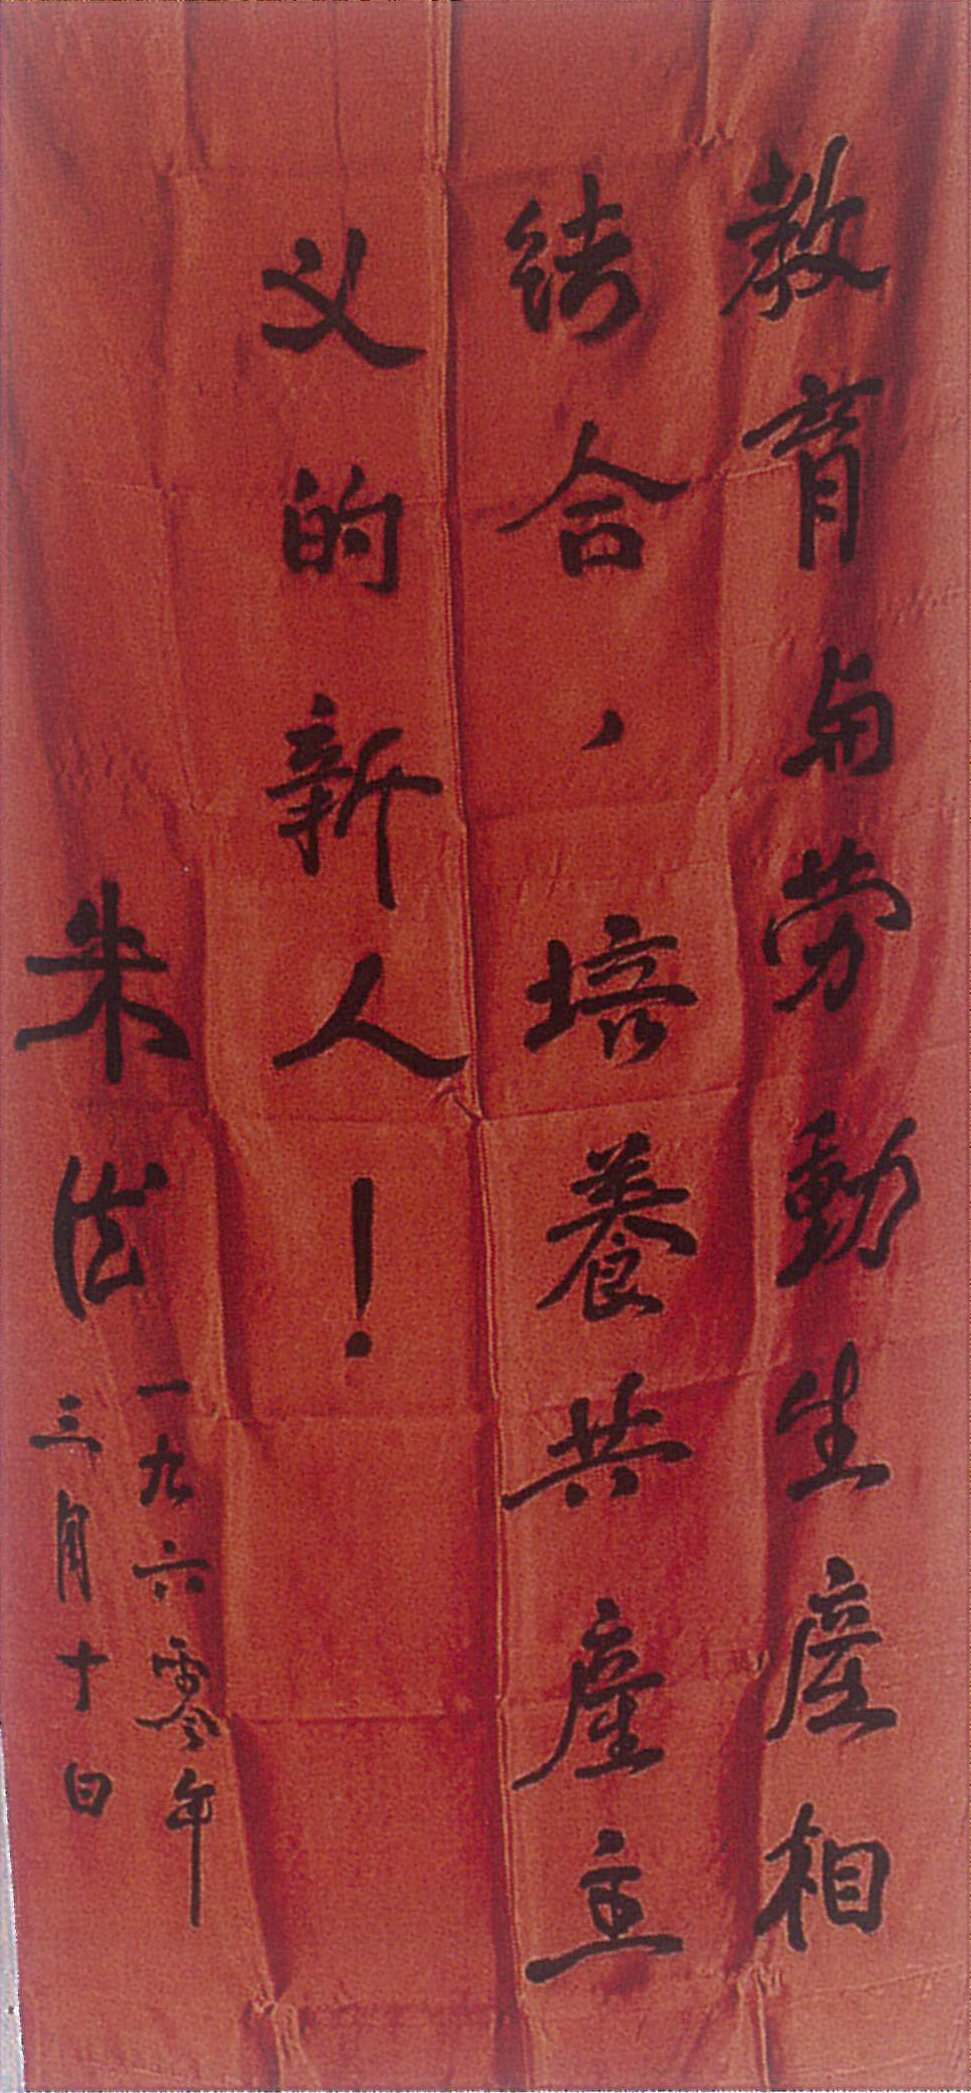 教育与劳動生產相
結合，培養共產主
义的新人！
朱德
一九六零年
三月十日